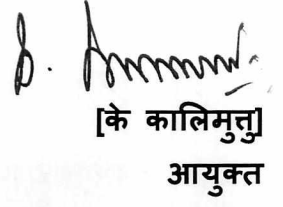 [के कालिमुत्तु]
आयुक्त